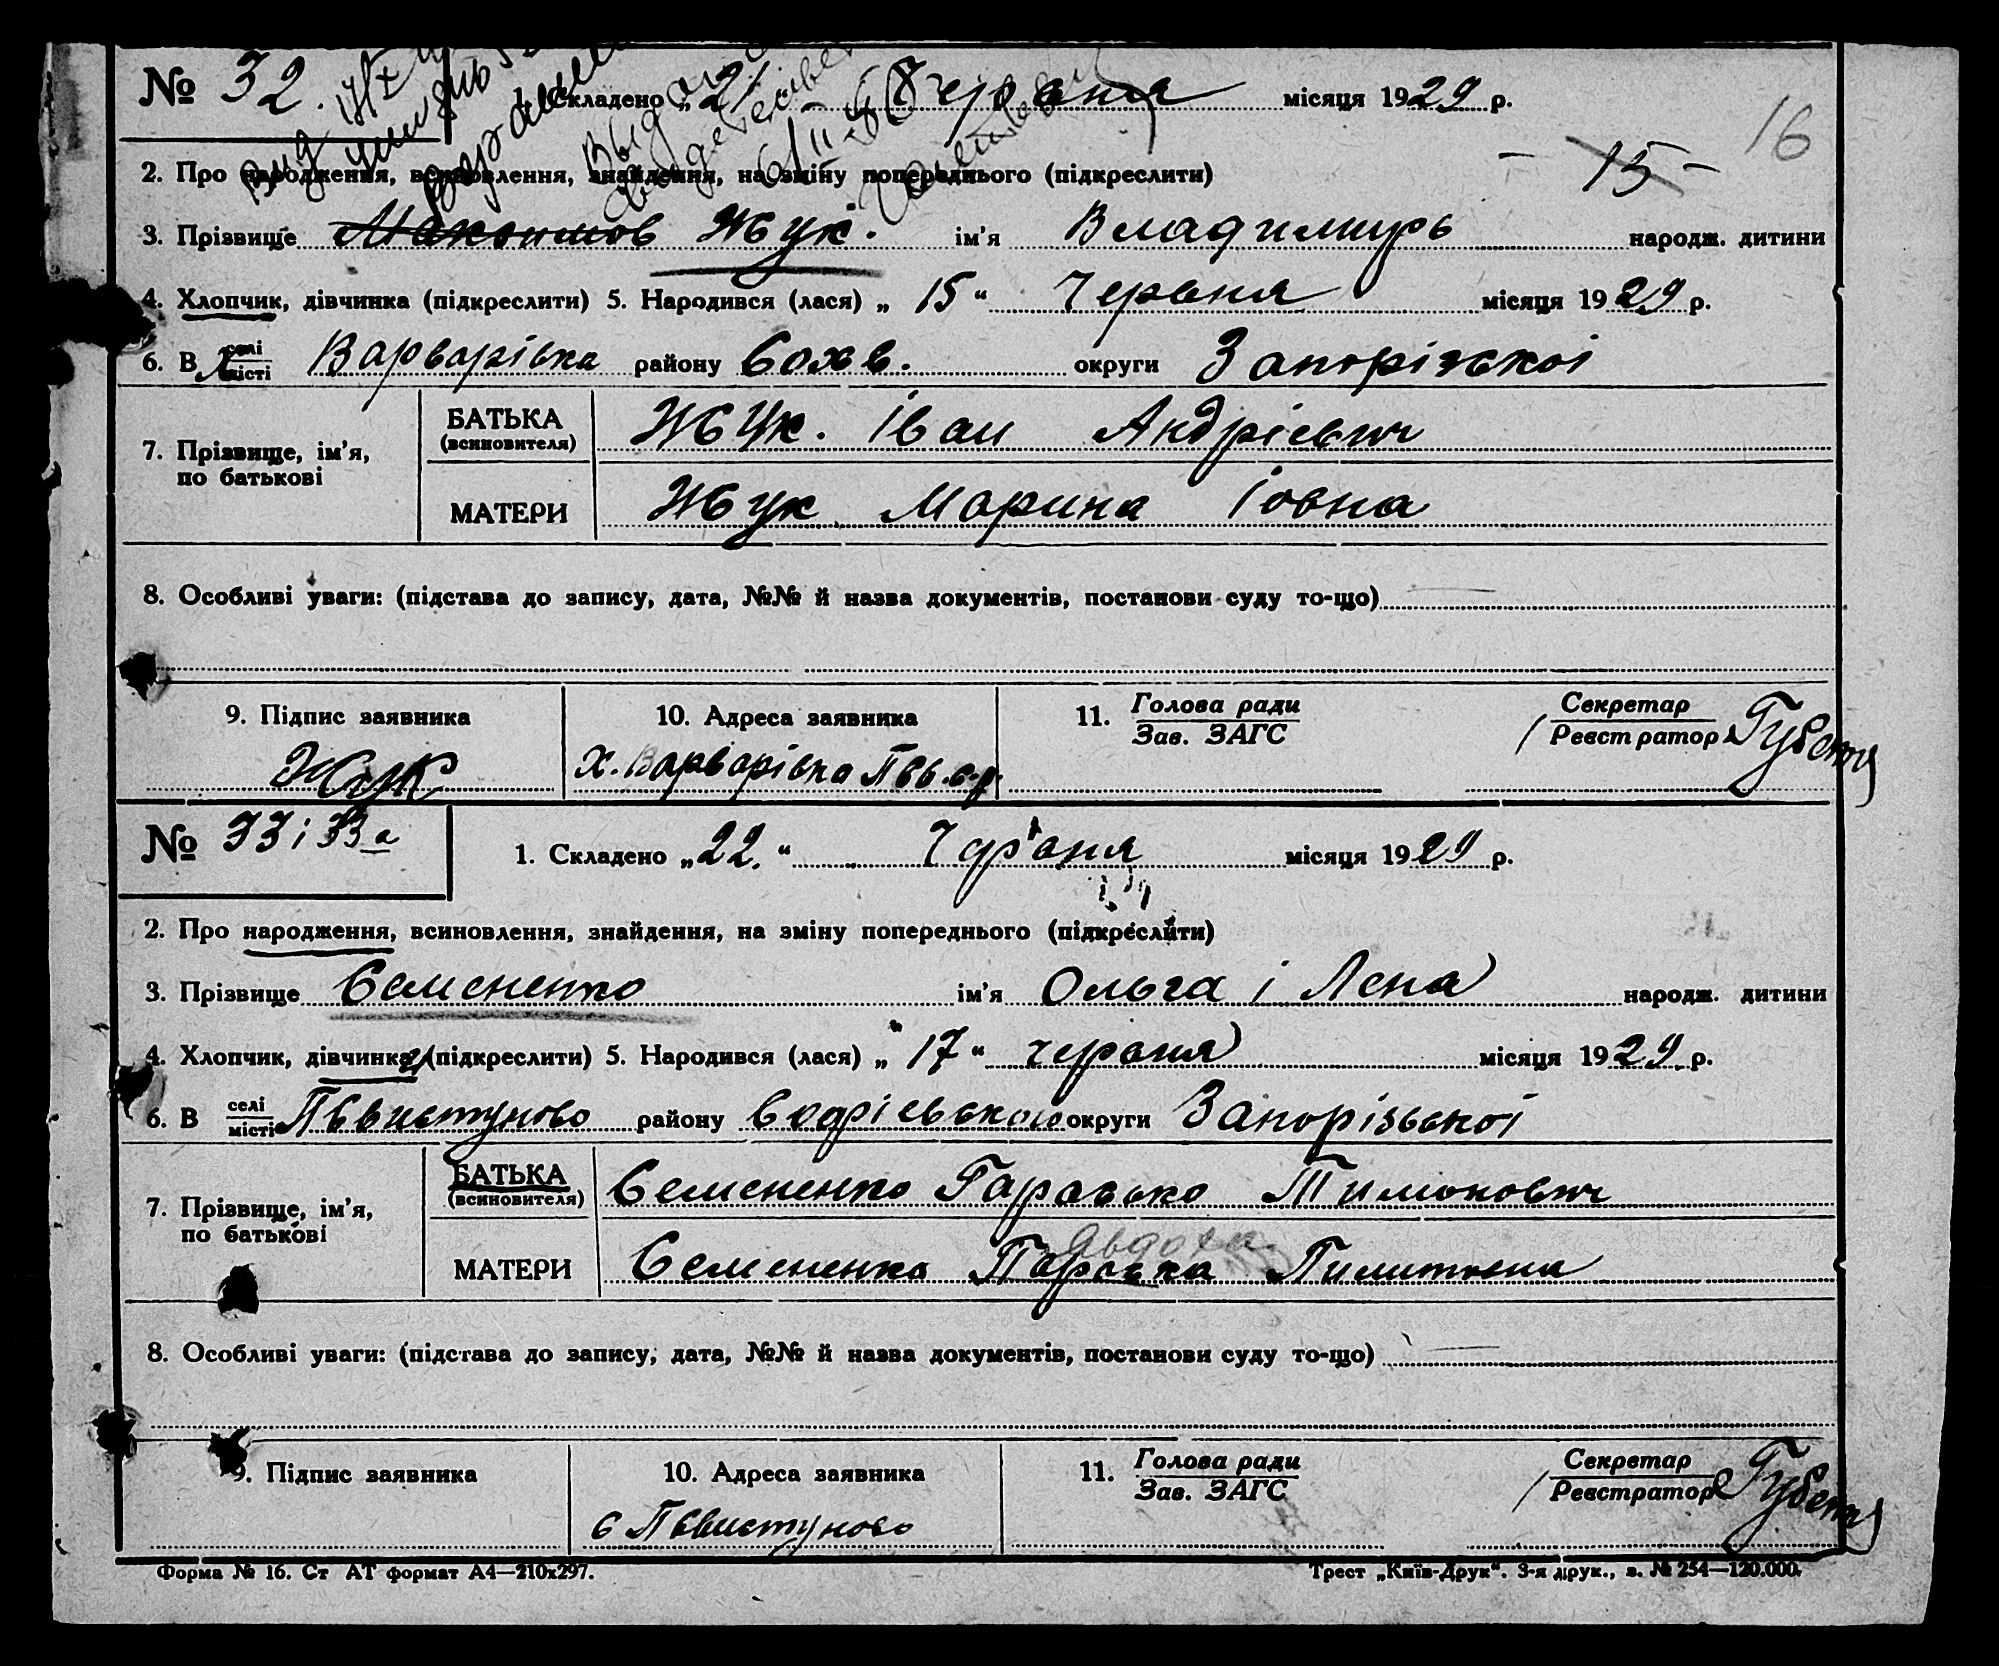 № 32. 1. Складено „21“ Червня місяця 1929 р.
16
2. Про народження, всиновлення, знайдення, на зміну попереднього (підкреслити) – 15 –
3. Прізвище Максимов Жук. ім'я Владимиръ народж. дитини
4. Хлопчик, дівчинка (підкреслити) 5. Народився (лася) „15“ Червня місяця 1929 р.
6. В х. селі місті Варварівка району Софіїв. округи Запорізької
7. Прізвище, ім'я, по батькові
БАТЬКА (всиновителя) Жук. Іван Андрієвич
МАТЕРИ Жук Марина Іовна
8. Особливі уваги: (підстава до запису, дата, №№ й назва документів, постанови суду то-що)
9. Підпис заявника 10. Адреса заявника 11. Голова ради Зав. ЗАГС Секретар Реєстратор
Жук х. Варварівка
№ 33 і 33а 1. Складено „22.“ Червня місяця 1929 р.
2. Про народження, всиновлення, знайдення, на зміну попереднього (підкреслити)
3. Прізвище Семененко ім'я Ольга і Лена народж. дитини
4. Хлопчик, дівчинка (підкреслити) 5. Народився (лася) „17“ червня місяця 1929 р.
6. В селі місті району округи Запорізької
7. Прізвище, ім'я, по батькові
БАТЬКА (всиновителя) Семененко Гарасько Тимонович
Явдоха
МАТЕРИ Семененко Параска
8. Особливі уваги: (підстава до запису, дата, №№ й назва документів, постанови суду то-що)
9. Підпис заявника 10. Адреса заявника 11. Голова ради Зав. ЗАГС Секретар Реєстратор
Форма № 16. Ст АТ формат А4—210х297. Трест „Київ-Друк“. 3-я друк., з. № 254—120.000.